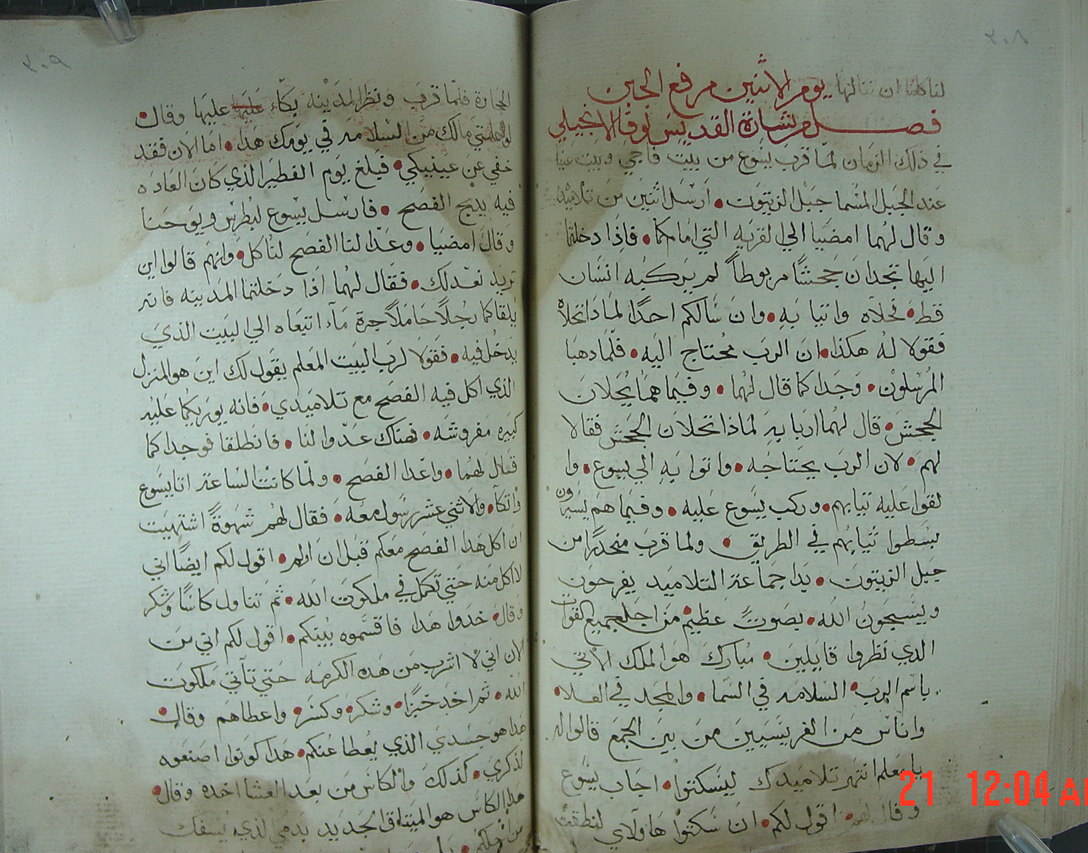 ٣٠٨
لنا كلنا ان ننالها يوم الاثنين مرفع الجبن
فصل من بشارة القديس لوقا الانجيلي
في ذلك الزمان لما قرب يسوع من بيت فاجي وبيت عنيا
عند الجبل المسما جبل الزيتون • ارسل اثنين من تلاميذه
وقال لهما امضيا الي القريه التي امامكما • فاذا دخلتما
اليها تجدان جحشًا مربوطاً لم يركبه انسان
قط • فحلاه واتيا به • وان سالكم احدًا لماذا تحلاه
فقولا له هكذا • ان الرب محتاج اليه • فلما ذهبا
المرسلون • وجدا كما قال لهما • وفيما هما يحلان
الجحش • قال لهما اربابه لماذا تحلان الجحش فقالا
لهم • لان الرب يحتاجه • واتوا به الي يسوع • وا
لقوا عليه ثيابهم • وركب يسوع عليه • وفيما هم يسيرون
بسطوا ثيابهم في الطريق • ولما قرب منحدرًا من
جبل الزيتون • بدا جماعة التلاميد يفرحون
ويسبحون الله • بصوتً عظيم • من اجل جميع القوات
الذي نظروا قايلين • مبارك هو الملك الاتي
باسم الرب • السلامه في السما • والمجد في العلا •
واناس من الفريسيين من بين الجمع قالوا له
يا معلم انتهر تلاميدك ليسكتوا • اجاب يسوع
وقال لهم • اقول لكم • ان سكتوا هاولاي لنطقت
21 12:04 A
٣٠٩
الحجارة فلما قرب ونظر المدينه بكاء عليها وقال •
لو علمتي مالك من السلامه في يومك هذا • اما الان فقد
خفي عن عينيكي • فبلغ يوم الفطير الذي كان العاده
فيه يذبح الفصح • فارسل يسوع لبطرس ويوحنا
وقال امضيا • وعدا لنا الفصح لناكل • وانهم قالوا اين
تريد نعد لك • فقال لهما اذا دخلتما المدينه فانه
يلقاكما رجلاً حاملاً جرة ماء اتبعاه الي البيت الذي
يدخل فيه • فقولا لرب البيت المعلم يقول لك اين هو المنزل
الذي اكل فيه الفصح مع تلاميدي • فانه يوريكما عليه
كبيره مفروشه • فهناك عدوا لنا • فانطلقا فوجدا كما
قال لهما • واعدا الفصح • ولما كانت الساعة اتا يسوع
واتكا • والاثني عشر رسول معه • فقال لهم شهوةً اشتهيت
ان اكل هذا الفصح معكم قبل ان اولم • اقول لكم ايضًا اني
لا اكل منه حتي تكمل في ملكوت الله • ثم تناول كاسًا وشكر
وقال • خدوا هدا فاقسموه بينكم • اقول لكم اني من
الان اني لا اشرب من هده الكرمه حتي تاتي ملكوت
الله • ثم اخد خبزًا • وشكر • وكسر • واعطاهم وقال •
هدا هو جسدي الذي يعطا عنكم • هدا كونوا اصنعوه
لذكري • كذلك والكاس من بعد العشا اخده وقال •
هدا الكاس هو الميتاق الجديد بدمي الذي يسفك
من اجلكم •